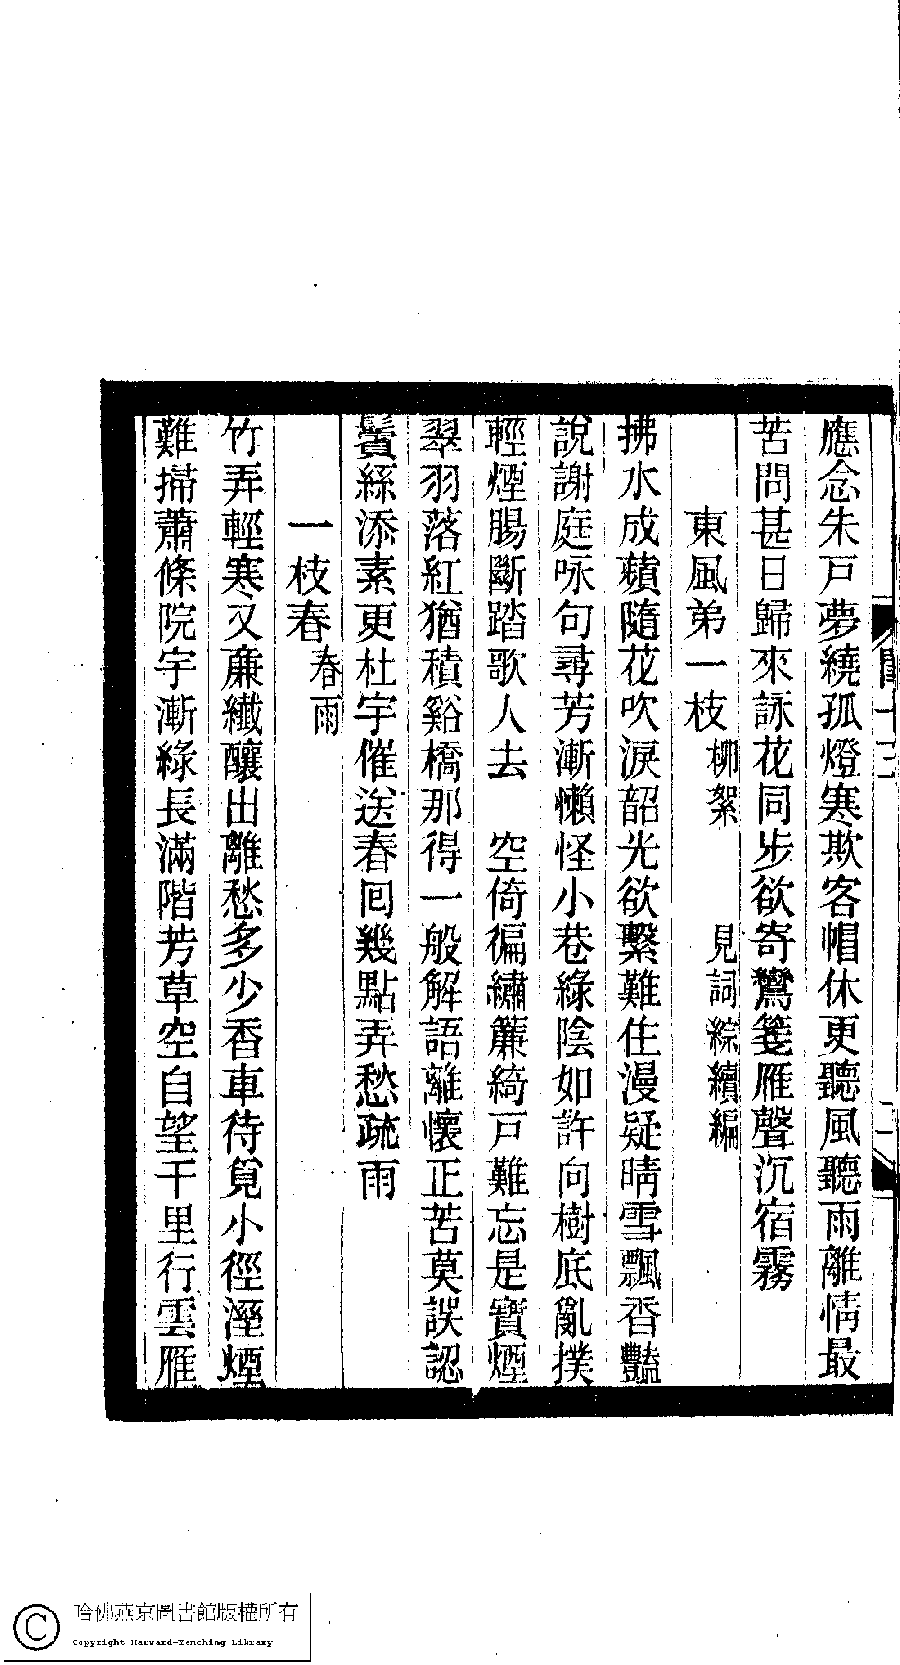 應念朱戸夢繞孤燈寒欺客帽休更聽風聽雨離情最
苦問甚日歸來詠花同步欲寄鸞箋雁聲沉宿霧
東風弟一枝 柳絮 見詞綜續編
拂水成蘋隨花吹淚韶光欲繫難住漫疑晴雪飄香豔
說謝庭咏句尋芳漸懶怪小巷綠陰如許向樹底亂撲
輕煙腸斷踏歌人去 空倚徧繡簾綺戸難忘是寶煙
翠羽落紅猶積谿橋那得一般解語離懷正苦莫誤認
鬢絲添素更杜宇催送春回幾點弄愁疏雨
一枝春 春雨
竹弄輕寒又廉纖釀出離愁多少香車待覓小徑溼煙
難掃蕭條院宇漸綠長滿階芳草空自望千里行雲雁
閨十三
二
哈佛燕京圖書館版權所有
Copyright Harvard-Yenching Library